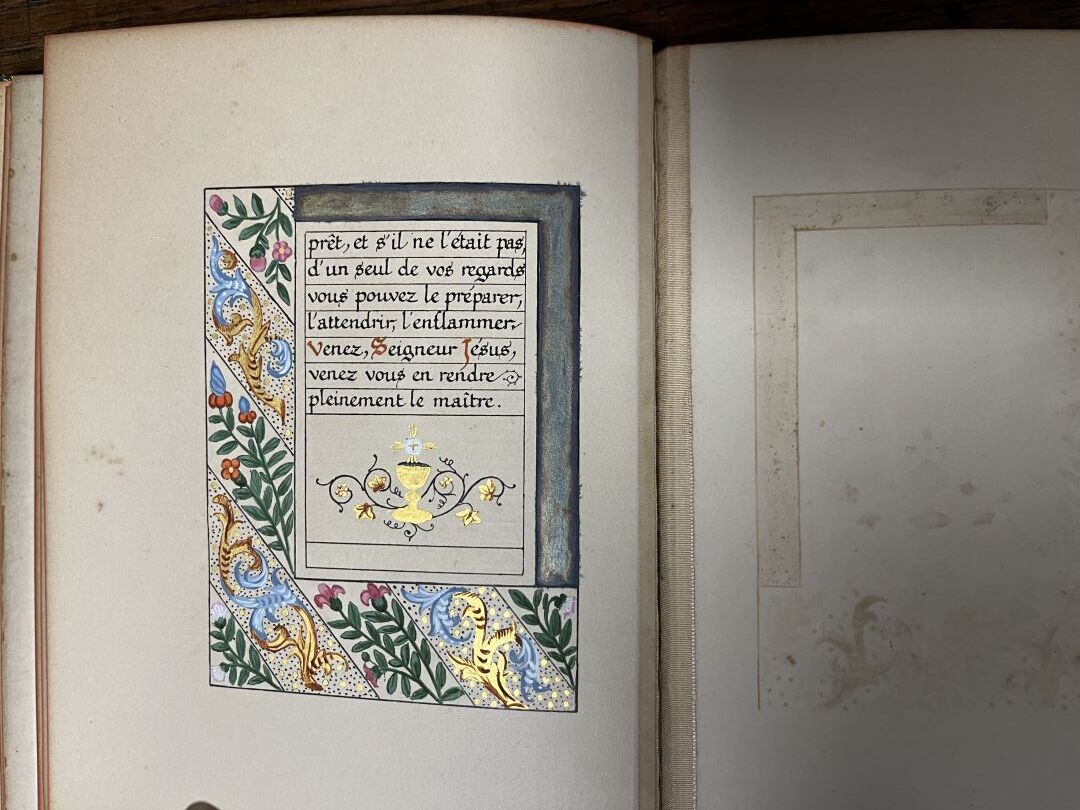 prêt, et s'il ne l'était pas,
d'un seul de vos regards
vous pouvez le préparer,
l'attendrir, l'enflammer.
Venez, Seigneur Jésus,
venez vous en rendre
pleinement le maître.